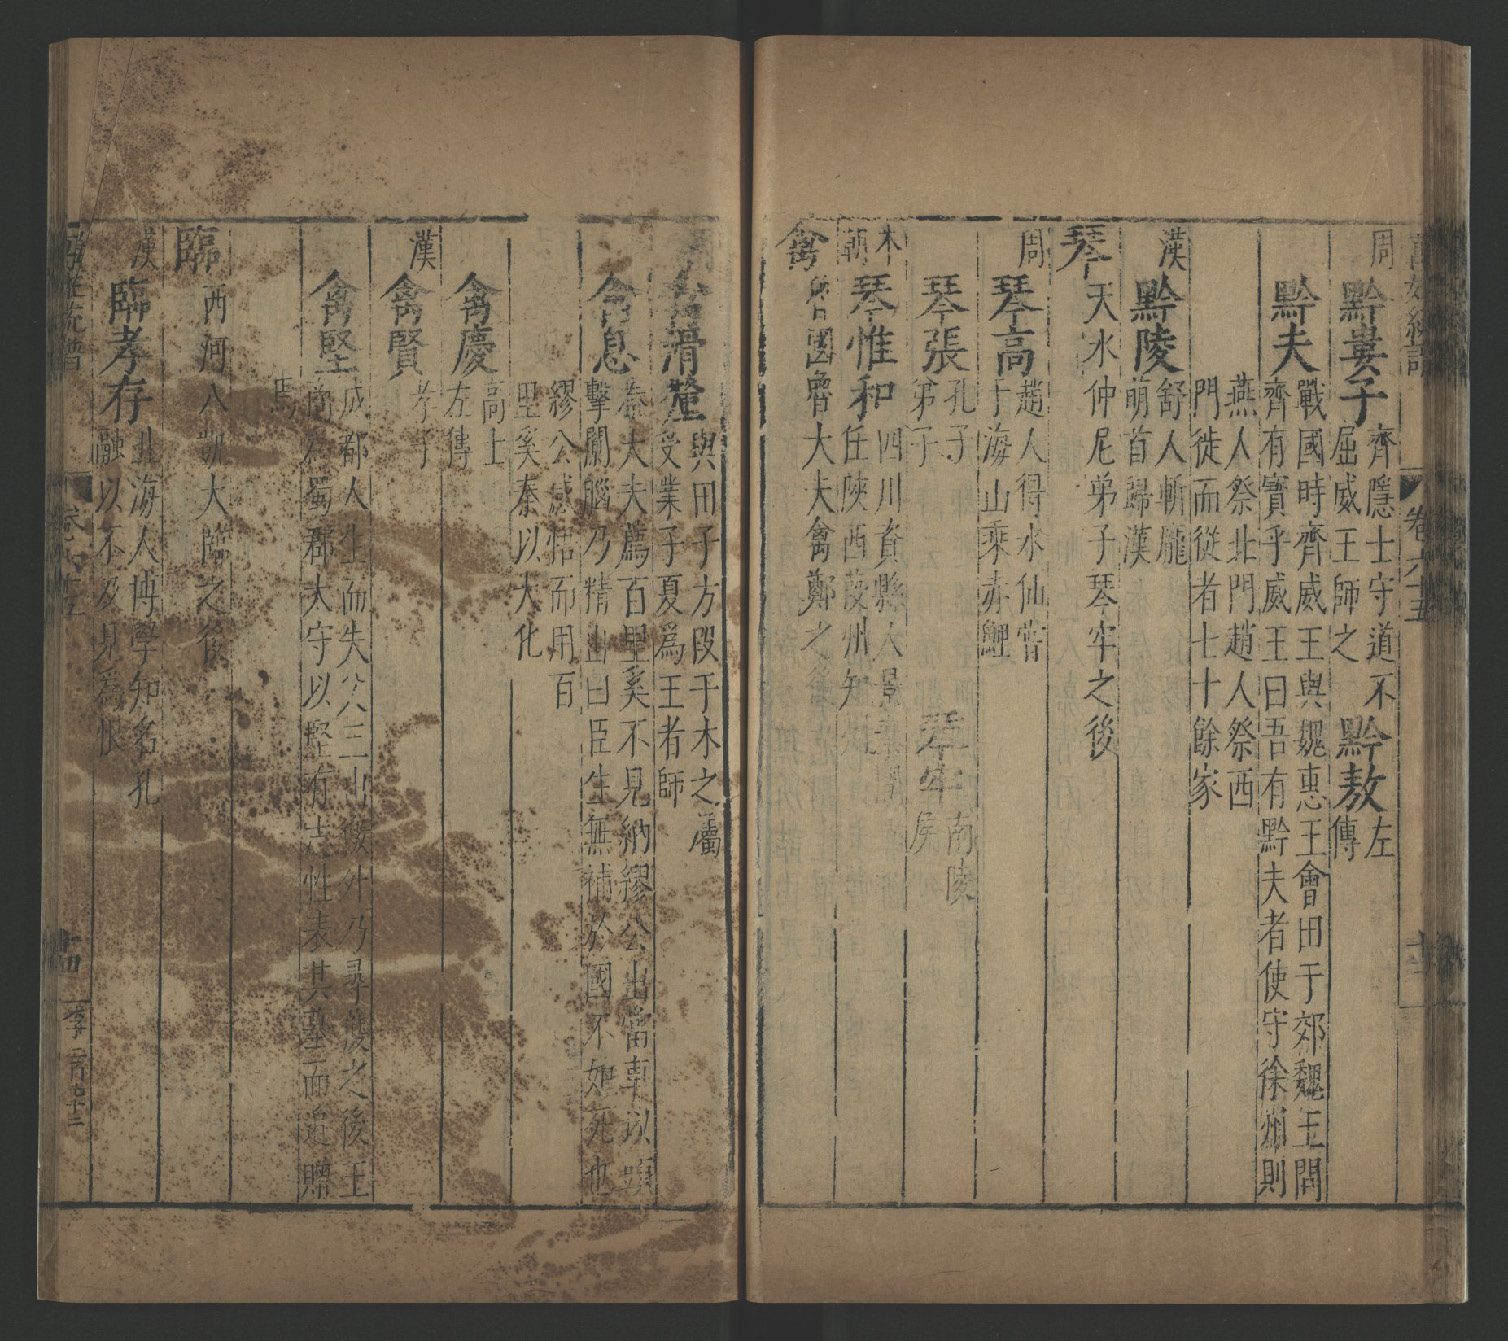 卷六十五
周
黔婁子
齊隱士守道不
屈威王師之
黔敖
左
傳
黔夫
戰國時齊威王與魏惠王會田于郊魏王問
齊有寶乎威王曰吾有黔夫者使守徐州則
燕人祭北門趙人祭西
門徙而從者七十餘家
漢
黔陵
舒人斬龐
萌首歸漢
琴
天水仲尼弟子琴牢之後
周
琴高
趙人得水仙嘗
于海山乘赤鯉
琴張
孔子
弟子
琴牢
南陵
房
本
朝
琴惟和
四川資縣人景
任陝西葭州知
禽
魯國魯大夫禽鄭之
滑釐
與田子方段干木之屬
受業子夏為王者師
禽息
秦大夫薦百里奚不見納繆公出當車以頭
擊闑腦乃精出曰臣生無補於國不如死也
繆公感悟而用百
里奚秦以大化
禽慶
高士
左傳
漢
禽賢
孝子
禽堅
成都人生而失父三
蜀郡太守以堅有志性表其墓而追贈
焉
臨
西河八凱大臨之後
漢
臨孝存
北海人博學知名孔
融以不及見為恨
卷六十五
十四
李二百四十三